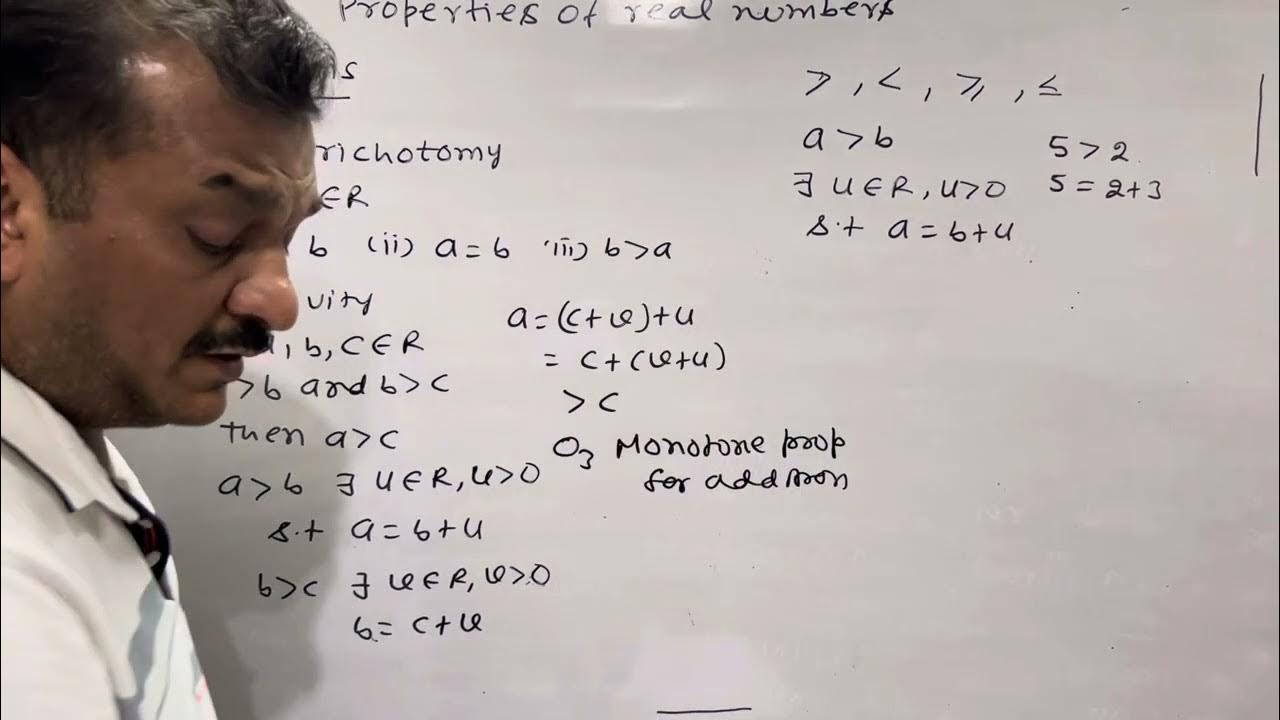 Properties of real numbers
richotomy
∈R
b (ii) a=b (iii) b>a
vity
a, b, C∈R
>b and b>c
then a>c
a>b ∃ u∈R, u>0
s.t a=b+u
b>c ∃ v∈R, v>0
b= c+v
a=(c+v)+u
= c+(v+u)
>c
O₃ Monotone prop
for addition
>, <, ≥, ≤
a>b
∃ u∈R, u>0
s.t a=b+u
5>2
5=2+3